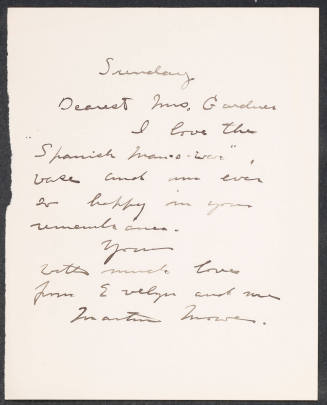 Sunday
Dearest Mrs. Gardner
I love the
"Spanish Man-o-war",
vase and am ever
so happy in your
remembrance.
Your
with much love
from Evelyn and me
Martin Mower.